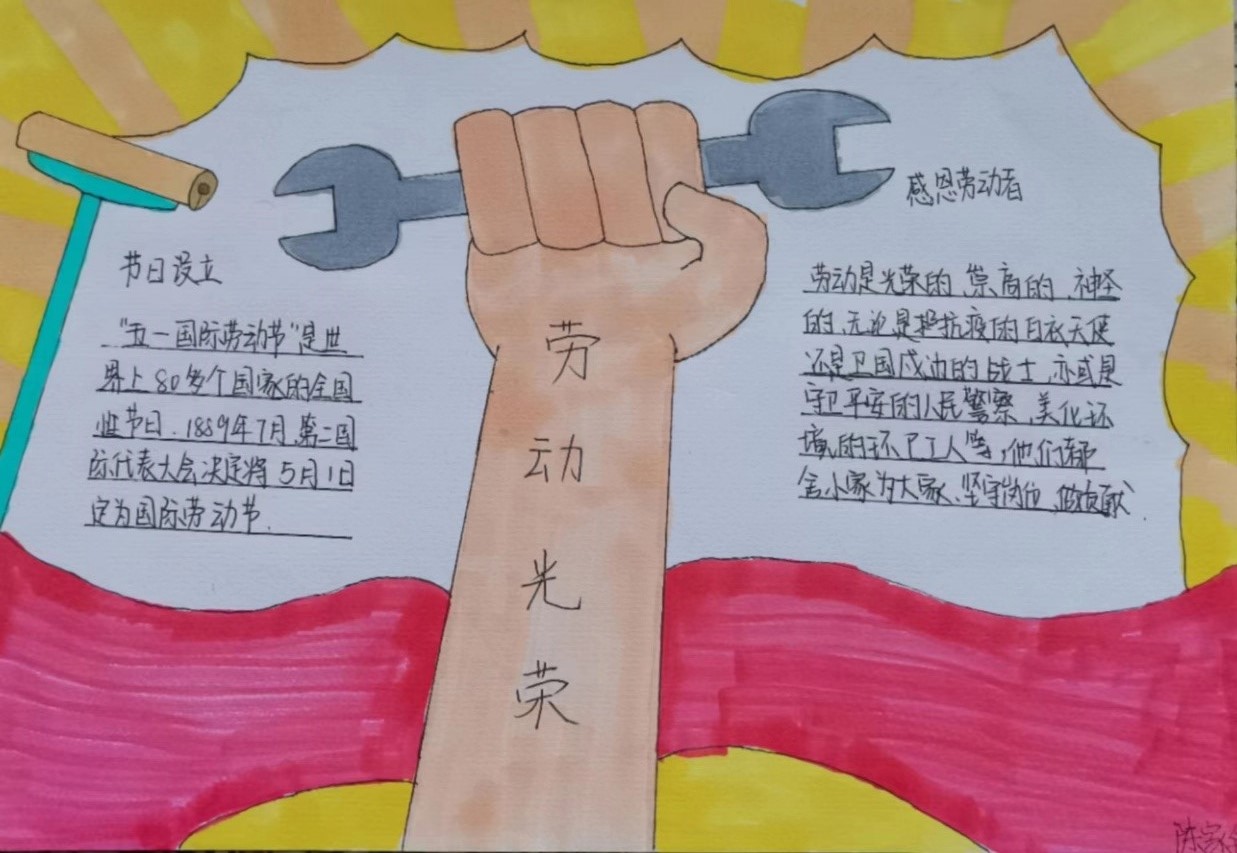 节日设立
"五一国际劳动节"是世
界上80多个国家的全国
性节日.1889年7月,第二国
际代表大会决定将5月1日
定为国际劳动节.
劳
动
光
荣
感恩劳动者
劳动是光荣的、崇高的、神圣
的,无论是抵抗疫的白衣天使
还是卫国戍边的战士,亦或是
守卫平安的人民警察,美化环
境的环卫工人等,他们都
舍小家为大家,坚守岗位,做贡献.
陈家